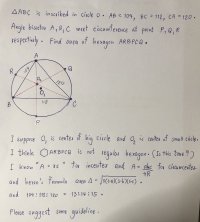 △ABC is inscribed in circle O. AB = 104, BC = 112, CA = 120.
Angle bisector A, B, C meet circumference at point P, Q, R
respectively. Find area of hexagon ARBPCQ.
A
R
Q
O₁
O₂
B
C
P
I suppose O₁ is center of big circle and O₂ is center of small circle.
I think ARBPCQ is not regular hexagon. (Is this true?)
I know "A = rs" for incenter and A = abc/4R for circumcenter
and heron's formula area Δ = √s(s-a)(s-b)(s-c)
and 104 : 112 : 120 = 13 : 14 : 15.
Please suggest some guideline.